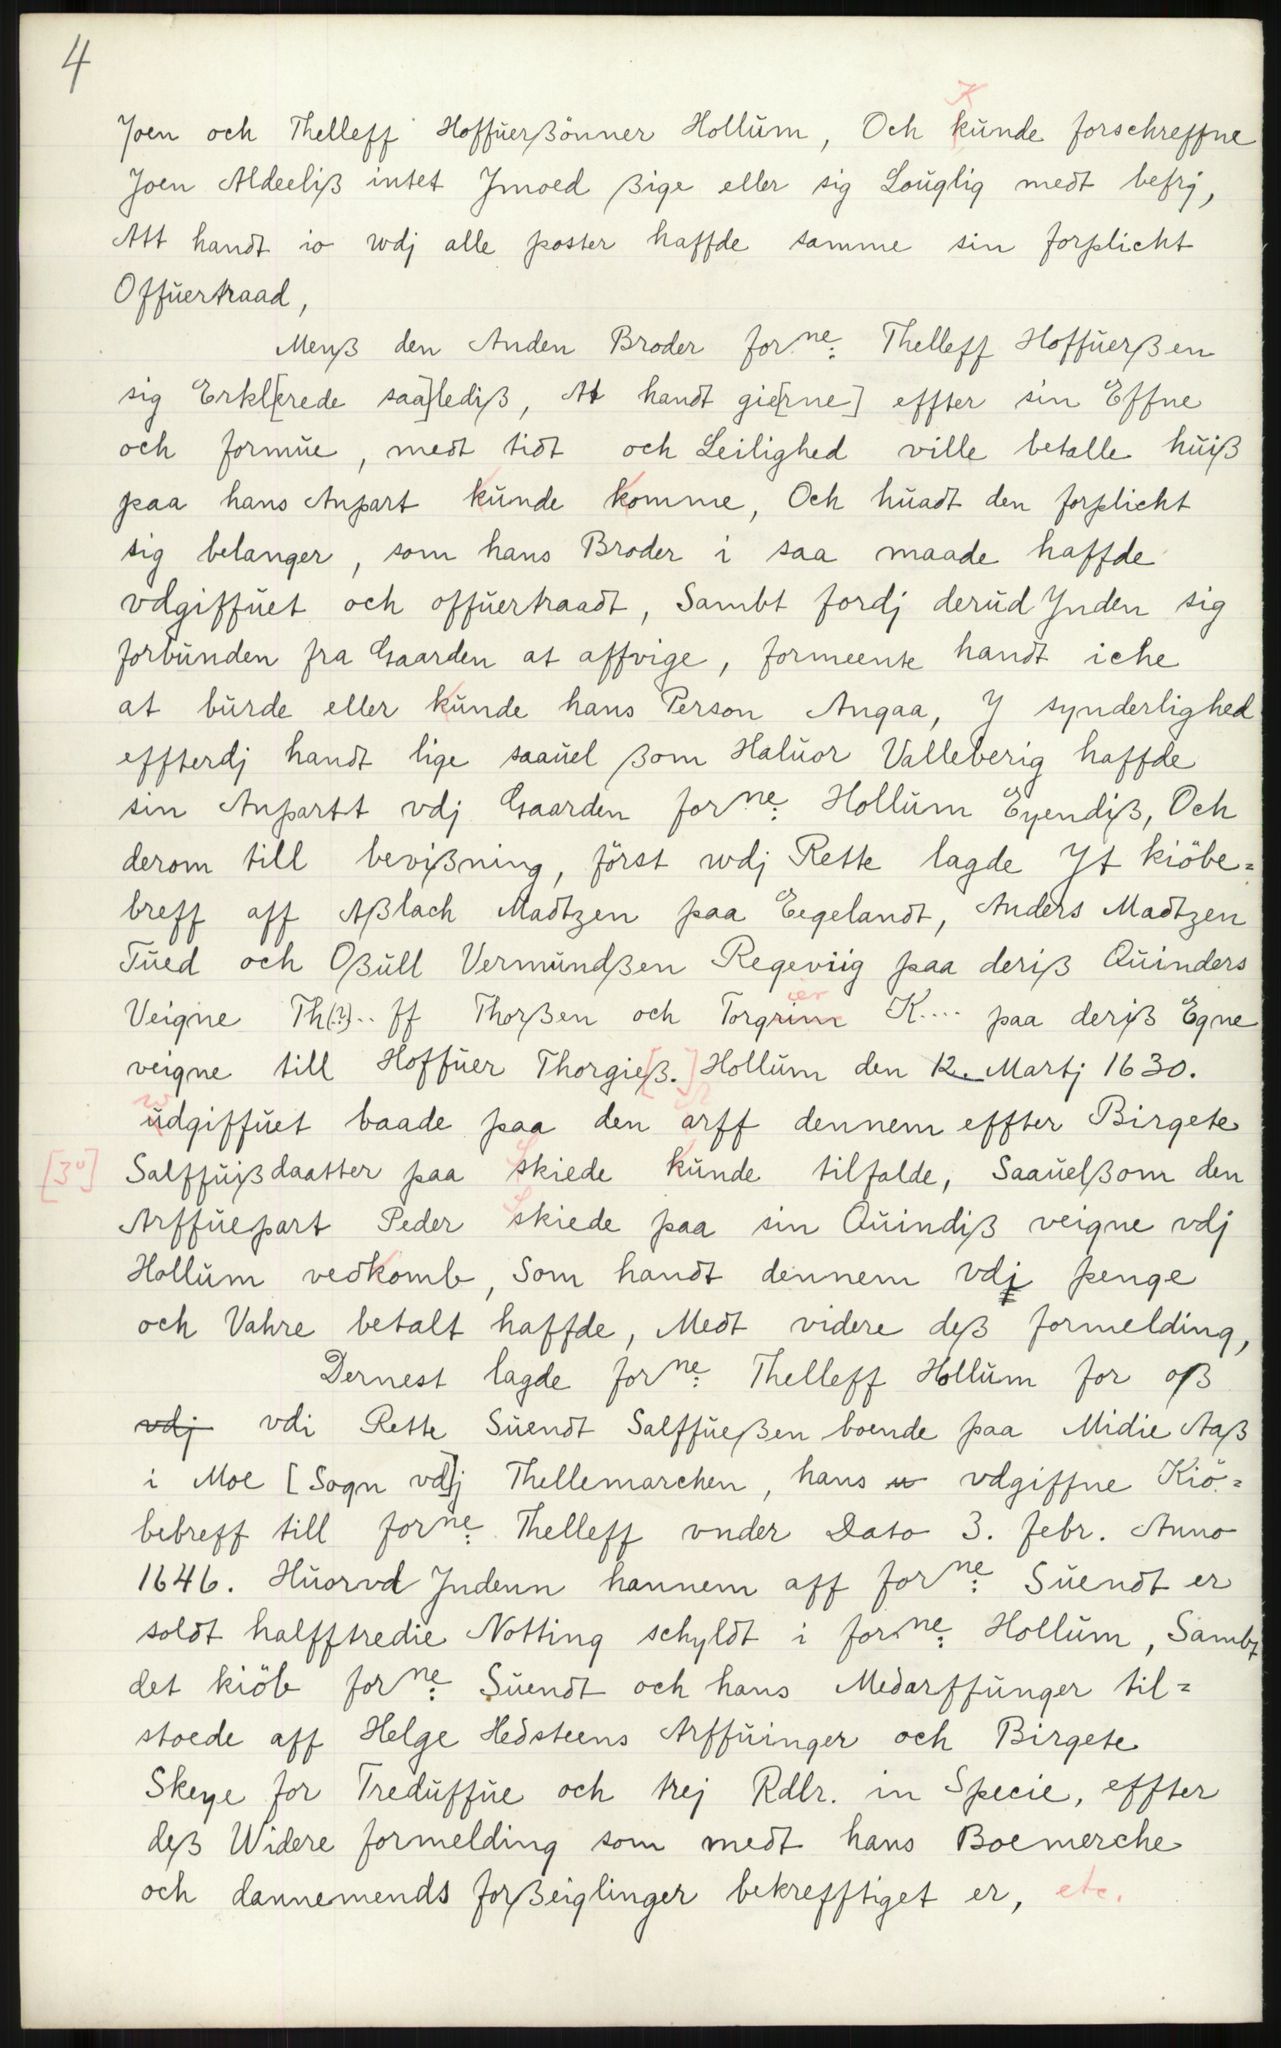 4
Joen och Thelleff Hoffuerßönner Hollum, Och Kunde forschreffne
Joen Aldeeliß intet Jmoed ßige eller sig Louglig medt befrj,
Att handt io wdj alle poster haffde samme sin forplicht
Offuertraad,
Menß den Anden Broder forne: Thelleff Hoffuerßen
sig Erkl[erede saa]lediß, At handt gie[rne] effter sin Effne
och formue, medt tidt och Leilighed ville betalle huiß
paa hans Anpart kunde komme, Och huadt den forplicht
sig belanger, som hans Broder i saa maade haffde
vdgiffuet och offuertraadt, Sambt fordj derud Ynden sig
forbunden fra Gaarden at affvige, formeente handt iche
at burde eller kunde hans Person Angaa, Y synderlighed
effterdj handt lige saauel ßom Haluor Valleberig haffde
sin Anpartt vdj Gaarden forne: Hollum Eyendiß, Och
derom till bevißning, först wdj Rette lagde Yt kiöbe=
breff aff Aßlach Madtzen paa Eegelandt, Anders Madtzen
Tued och Oßull Vermundßen Regeviig paa deriß Quinders
Veigne Th(?)..ff Thorßen och Torgrim ier K.... paa deriß Egne
veigne till Hoffuer Thorgieß[.] Hollum den 12. Martj 1630.
wdgiffuet baade paa den arff dennem effter Birgete
[3º] Salffuißdaatter paa Skiede kunde tilfalde, Saauelßom den
Arffuepart Peder Skiede paa sin Quindiß veigne vdj
Hollum vedkomb, Som handt dennem vdj penge
och Vahre betalt haffde, Medt videre deß formelding,
Dernest lagde forne: Thelleff Hollum for oß
vdj vdi Rette Suendt Salffueßen boende paa Midie Aaß
i Moe [Sogn vd]j Thellemarchen, hans u vdgiffne Kiö=
bebreff till forne: Thelleff vnder Dato 3. febr. Anno
1646. Huorvd Jndenn hannem aff forne: Suendt er
soldt halfftredie Notting schyldt i forne: Hollum, Sambt
det kiöb forne: Suendt och hans Medarffunger til=
stoede aff Helge Hedsteens Arffuinger och Birgete
Skeye for Treduffue och trej Rdlr. in Specie, effter
deß Widere formelding som medt hans Boemerche
och dannemends forßeiglinger bekrefftiget er, etc.